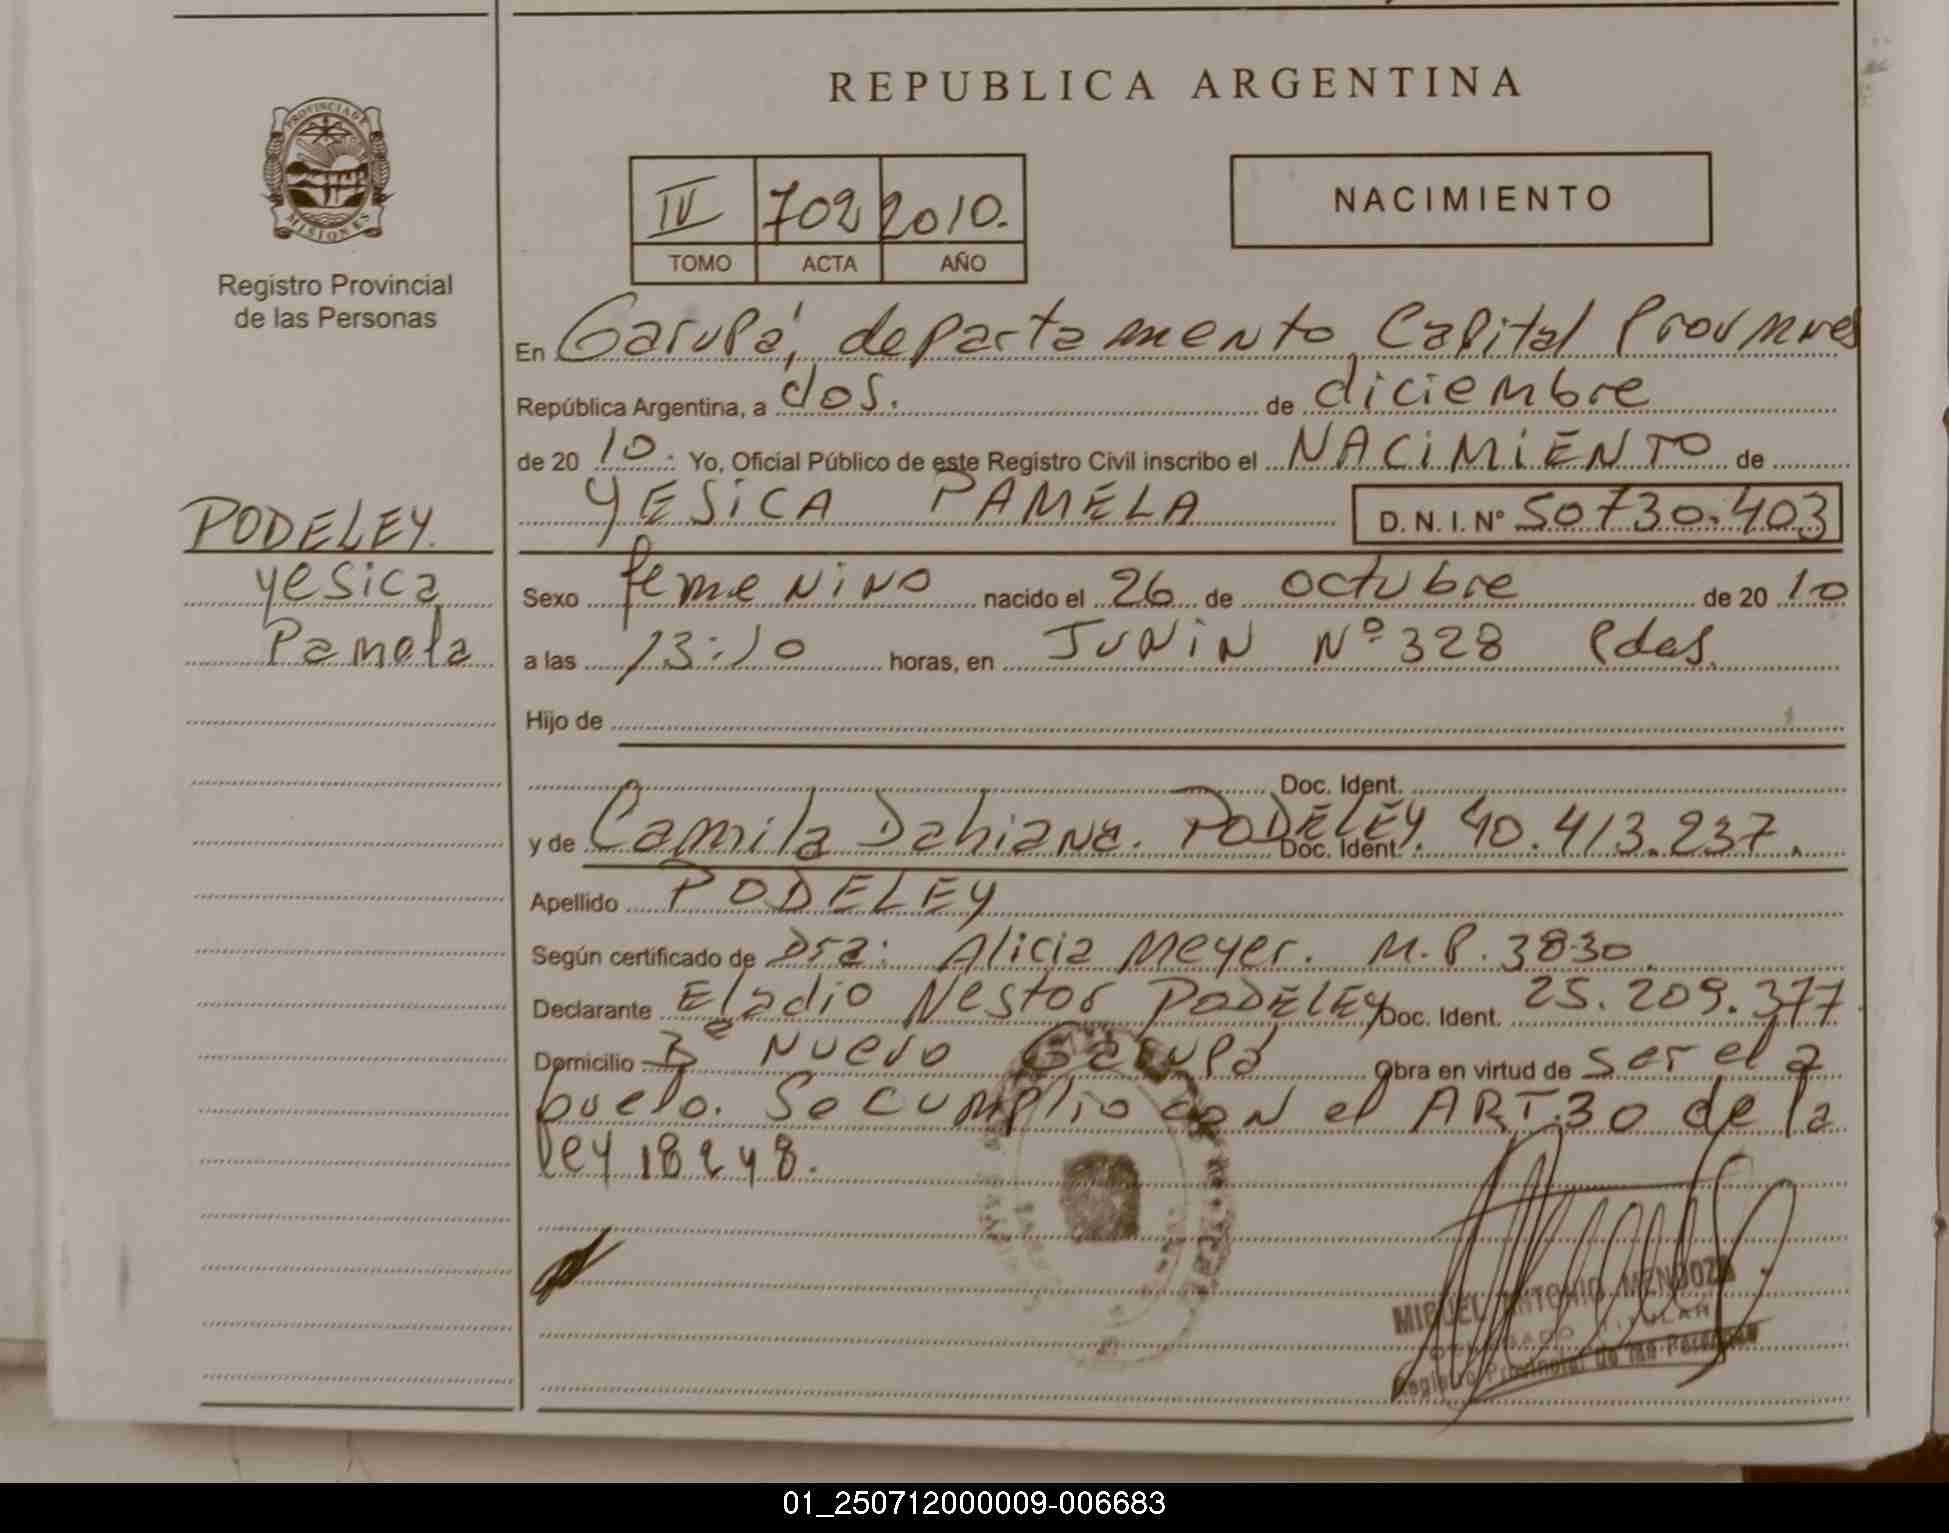 REPUBLICA ARGENTINA
PROVINCIA DE
MISIONES
Registro Provincial
de las Personas
IV 702 2010.
TOMO ACTA AÑO
NACIMIENTO
En Garupá, departamento Capital Prov
República Argentina, a dos. de diciembre
de 20 10 : Yo, Oficial Público de este Registro Civil inscribo el NACIMIENTO de
YESICA PAMELA D. N. I. Nº 50730.403
PODELEY.
yesica
Pamela
Sexo femenino nacido el 26 de octubre de 20 10
a las 13:10 horas, en JUNIN Nº 328 Pdas.
Hijo de
Doc. Ident.
y de Camila Dahiana. PODELEY. Doc. Ident. 40.413.237.
Apellido PODELEY
Según certificado de Dra: Alicia Meyer. M.P. 3830.
Declarante Eladio Nestor PODELEY Doc. Ident. 25.209.377
Domicilio Bº Nuevo Garupá Obra en virtud de ser el a
buelo. Se cumplio con el ART.30 de la
ley 18248.
MIGUEL ANTONIO MENDOZA
TITULAR
Registro Provincial de las Personas
01_250712000009-006683